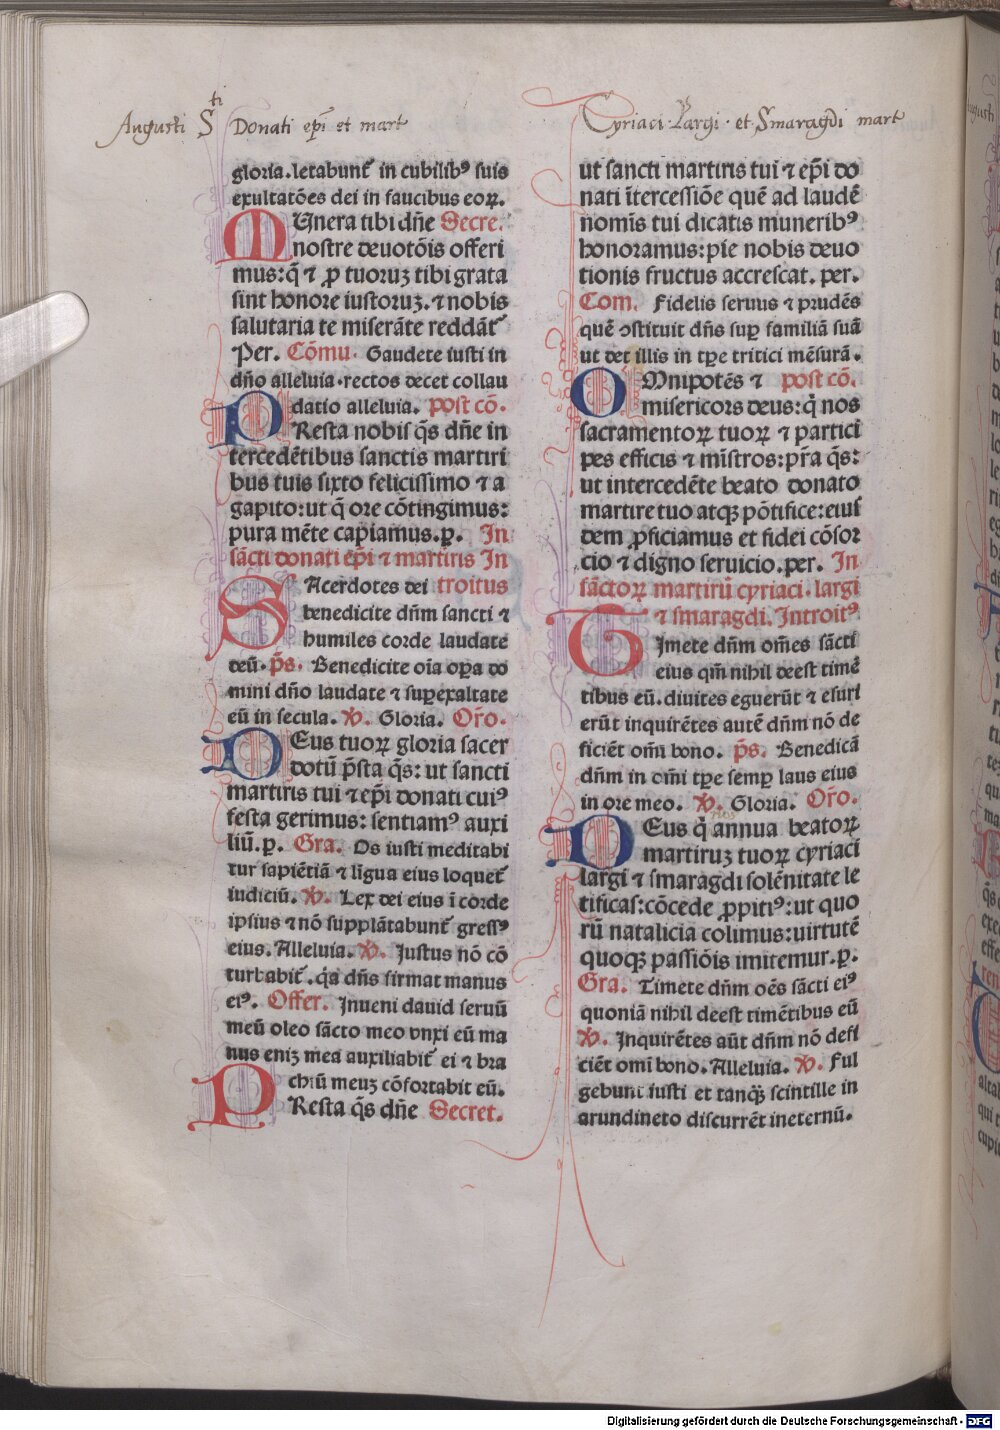 Augusti Sti Donati epi et mart
Cyriaci Largi · et Smaragdi mart
gloria.letabunt᷑ in cubilibꝰ suis
exultatões dei in faucibus eoꝝ.
MUnera tibi dn̄e Secre.
nostre deuotõis offeri
mus: q̄ ⁊ ꝓ tuoruꝫ tibi grata
sint honore iustoruꝫ. ⁊ nobis
salutaria te miserāte reddāt᷑
Per. Cōmu. Gaudete iusti in
dn̄o alleluia.rectos decet collau
datio alleluia. post cō.
PResta nobis q̄s dn̄e in
tercedētibus sanctis martiri
bus tuis sixto felicissimo ⁊ a
gapito: ut q̄ ore cōtingimus:
pura mēte capiamus.ꝑ. In
sācti donati ep̄i ⁊ martiris In
SAcerdotes dei troitus
benedicite dn̄m sancti ⁊
humiles corde laudate
deū. p̄s. Benedicite oīa oꝑa do
mini dn̄o laudate ⁊ suꝑexaltate
eū in secula. ℣. Gloria. Or̄o.
DEus tuoꝝ gloria sacer
dotū p̄sta q̄s: ut sancti
martiris tui ⁊ ep̄i donati cuiꝰ
festa gerimus: sentiamꝰ auxi
liū.ꝑ. Gra. Os iusti meditabi
tur sapiētiā ⁊ līgua eius loquet᷑
iudiciū. ℣. Lex dei eius ī corde
ipsius ⁊ nō supplātabunt᷑ gressꝰ
eius. Alleluia. ℣. Justus nō cō
turbabit᷑. q̄a dn̄s firmat manus
eiꝰ. Offer. Jnueni dauid seruū
meū oleo sācto meo vnxi eū ma
nus eniꝫ mea auxiliabit᷑ ei ⁊ bra
chiū meuꝫ cōfortabit eū.
PResta q̄s dn̄e Secret.
ut sancti martiris tui ⁊ ep̄i do
nati ītercessiōe quē ad laudē
nomīs tui dicatis muneribꝰ
honoramus: pie nobis deuo
tionis fructus accrescat. per.
Com. Fidelis seruus ⁊ prudēs
quē ꝯstituit dn̄s suꝑ familiā suā
ut det illis in tꝑe tritici mēsurā.
OMnipotēs ⁊ post cō.
misericors deus: q̄ nos
sacramentoꝝ tuoꝝ ⁊ partici
pes efficis ⁊ mīstros: p̄ra q̄s:
ut intercedēte beato donato
martire tuo atqꝫ pōtifice: eius
dem ꝓficiamus et fidei cōsor
cio ⁊ digno seruicio.per. In
sāctoꝝ martirū cyriaci.largi
⁊ smaragdi. Introitꝰ
TJmete dn̄m om̄es sācti
eius qm̄ nihil deest timē
tibus eū. diuites eguerūt ⁊ esuri
erūt inquirētes autē dn̄m nō de
ficiēt om̄i bono. p̄s. Benedicā
dn̄m in om̄i tꝑe semꝑ laus eius
in ore meo. ℣. Gloria. Or̄o.
DEus q̄ annua beatoꝝ
martiruꝫ tuoꝝ cyriaci
largi ⁊ smaragdi solēnitate le
tificas: cōcede ꝓpitiꝰ: ut quo
rū natalicia colimus: uirtutē
quoqꝫ passiōis imitemur.ꝑ.
Gra. Timete dn̄m oēs sācti eiꝰ
quoniā nihil deest timētibus eū
℣. Jnquirētes aūt dn̄m nō defi
ciēt omī bono. Alleluia. ℣. Ful
gebunt iusti et tanqꝫ̄ scintille in
arundineto discurrēt ineternū.
Digitalisierung gefördert durch die Deutsche Forschungsgemeinschaft - DFG